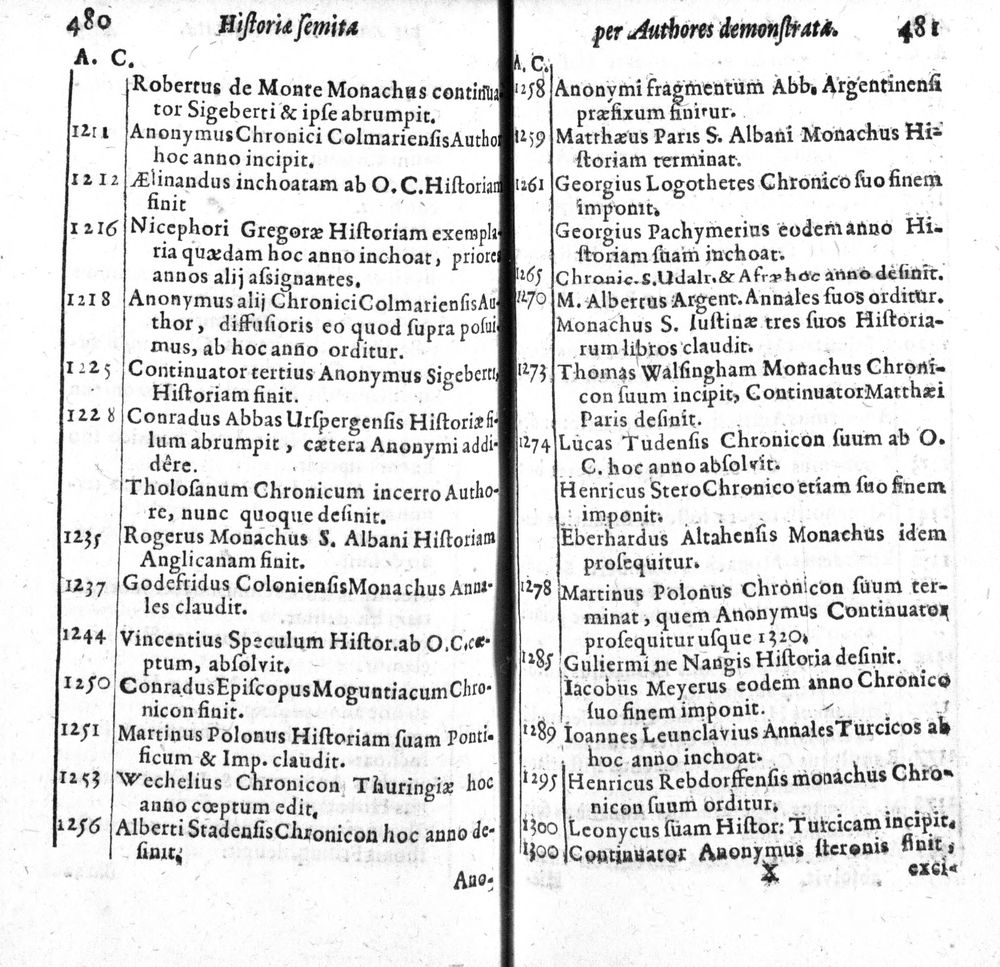 480 Historiæ ſemita
A. C.
Robertus de Monte Monachus continua
tor Sigeberti & ipſe abrumpit.
1211 Anonymus Chronici Colmarienſis Author
hoc anno incipit.
1212 Ælinandus inchoatam ab O. C. Hiſtoriam
finit
1216 Nicephori Gregoræ Hiſtoriam exempla-
ria quædam hoc anno inchoat, priores
annos alij aſsignantes.
1218 Anonymus alij Chronici Colmarienſis Au-
thor, diffuſioris eo quod ſupra poſui-
mus, ab hoc anno orditur.
1225 Continuator tertius Anonymus Sigeberti,
Hiſtoriam finit.
1228 Conradus Abbas Urſpergenſis Hiſtoriæ fi-
lum abrumpit, cætera Anonymi addi-
dêre.
Tholoſanum Chronicum incerto Autho-
re, nunc quoque deſinit.
1235 Rogerus Monachus S. Albani Hiſtoriam
Anglicanam finit.
1237 Godefridus Colonienſis Monachus Anna-
les claudit.
1244 Vincentius Speculum Hiſtor. ab O. C. cœ-
ptum, abſolvit.
1250 Conradus Epiſcopus Moguntiacum Chro-
nicon finit.
1251 Martinus Polonus Hiſtoriam ſuam Ponti-
ficum & Imp. claudit.
1253 Wechelius Chronicon Thuringiæ hoc
anno cœptum edit.
1256 Alberti Stadenſis Chronicon hoc anno de-
ſinit;
Ano-
per Authores demonſtrata. 481
A. C.
1258 Anonymi fragmentum Abb. Argentinenſi
præfixum finitur.
1259 Matthæus Paris S. Albani Monachus Hi-
ſtoriam terminat.
1261 Georgius Logothetes Chronico ſuo finem
imponit.
Georgius Pachymerius eodem anno Hi-
ſtoriam ſuam inchoat.
1265 Chronic. S. Udalr. & Afræ hoc anno deſinit.
1270 M. Albertus Argent. Annales ſuos orditur.
Monachus S. Iuſtinæ tres ſuos Hiſtoria-
rum libros claudit.
1273 Thomas Walſingham Monachus Chroni-
con ſuum incipit, Continuator Matthæi
Paris deſinit.
1274 Lucas Tudenſis Chronicon ſuum ab O.
C. hoc anno abſolvit.
Henricus Stero Chronico etiam ſuo finem
imponit.
Eberhardus Altahenſis Monachus idem
proſequitur.
1278 Martinus Polonus Chronicon ſuum ter-
minat, quem Anonymus Continuator
proſequitur uſque 1320.
1285 Guliermi ne Nangis Hiſtoria deſinit.
Iacobus Meyerus eodem anno Chronico
ſuo finem imponit.
1289 Ioannes Leunclavius Annales Turcicos ab
hoc anno inchoat.
1295 Henricus Rebdorffenſis monachus Chro-
nicon ſuum orditur.
1300 Leonycus ſuam Hiſtor: Turcicam incipit.
1300 Continuator Anonymus ſteronis finit;
X exci-